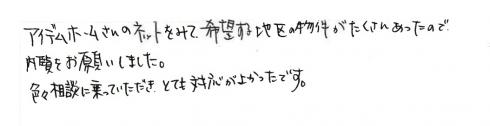 アイデムホームさんのネットをみて、希望する地区の物件がたくさんあったので
内覧をお願いしました。
色々相談に乗っていただき、とても対応が良かったです。